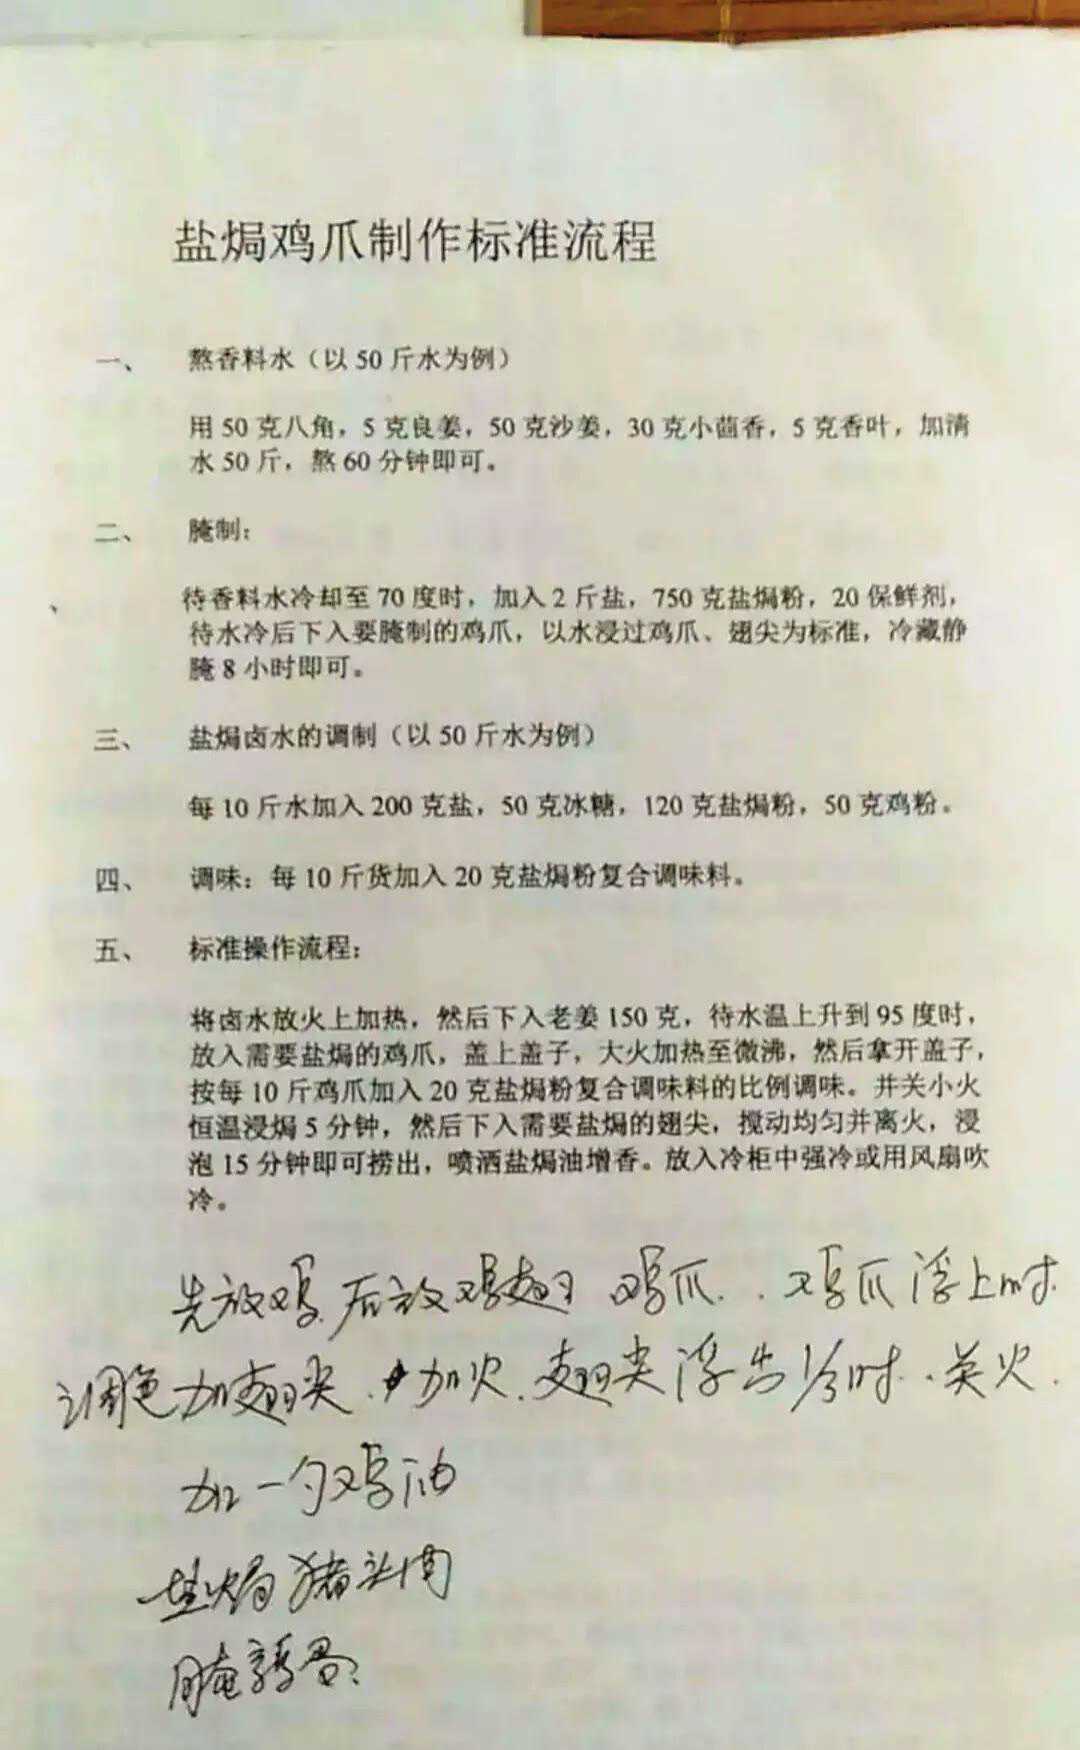 盐焗鸡爪制作标准流程
一、 熬香料水（以 50 斤水为例）
用 50 克八角，5 克良姜，50 克沙姜，30 克小茴香，5 克香叶，加清
水 50 斤，熬 60 分钟即可。
二、 腌制：
待香料水冷却至 70 度时，加入 2 斤盐，750 克盐焗粉，20 保鲜剂，
待水冷后下入要腌制的鸡爪，以水浸过鸡爪、翅尖为标准，冷藏静
腌 8 小时即可。
三、 盐焗卤水的调制（以 50 斤水为例）
每 10 斤水加入 200 克盐，50 克冰糖，120 克盐焗粉，50 克鸡粉。
四、 调味：每 10 斤货加入 20 克盐焗粉复合调味料。
五、 标准操作流程：
将卤水放火上加热，然后下入老姜 150 克，待水温上升到 95 度时，
放入需要盐焗的鸡爪，盖上盖子，大火加热至微沸，然后拿开盖子，
按每 10 斤鸡爪加入 20 克盐焗粉复合调味料的比例调味。并关小火
恒温浸焗 5 分钟，然后下入需要盐焗的翅尖，搅动均匀并离火，浸
泡 15 分钟即可捞出，喷洒盐焗油增香。放入冷柜中强冷或用风扇吹
冷。
先放鸡 后放鸡翅 鸡爪．．鸡爪浮上时．
调色加翅尖．加火．翅尖浮 1/3时．关火．
加一勺鸡油
盐焗猪头肉
腌